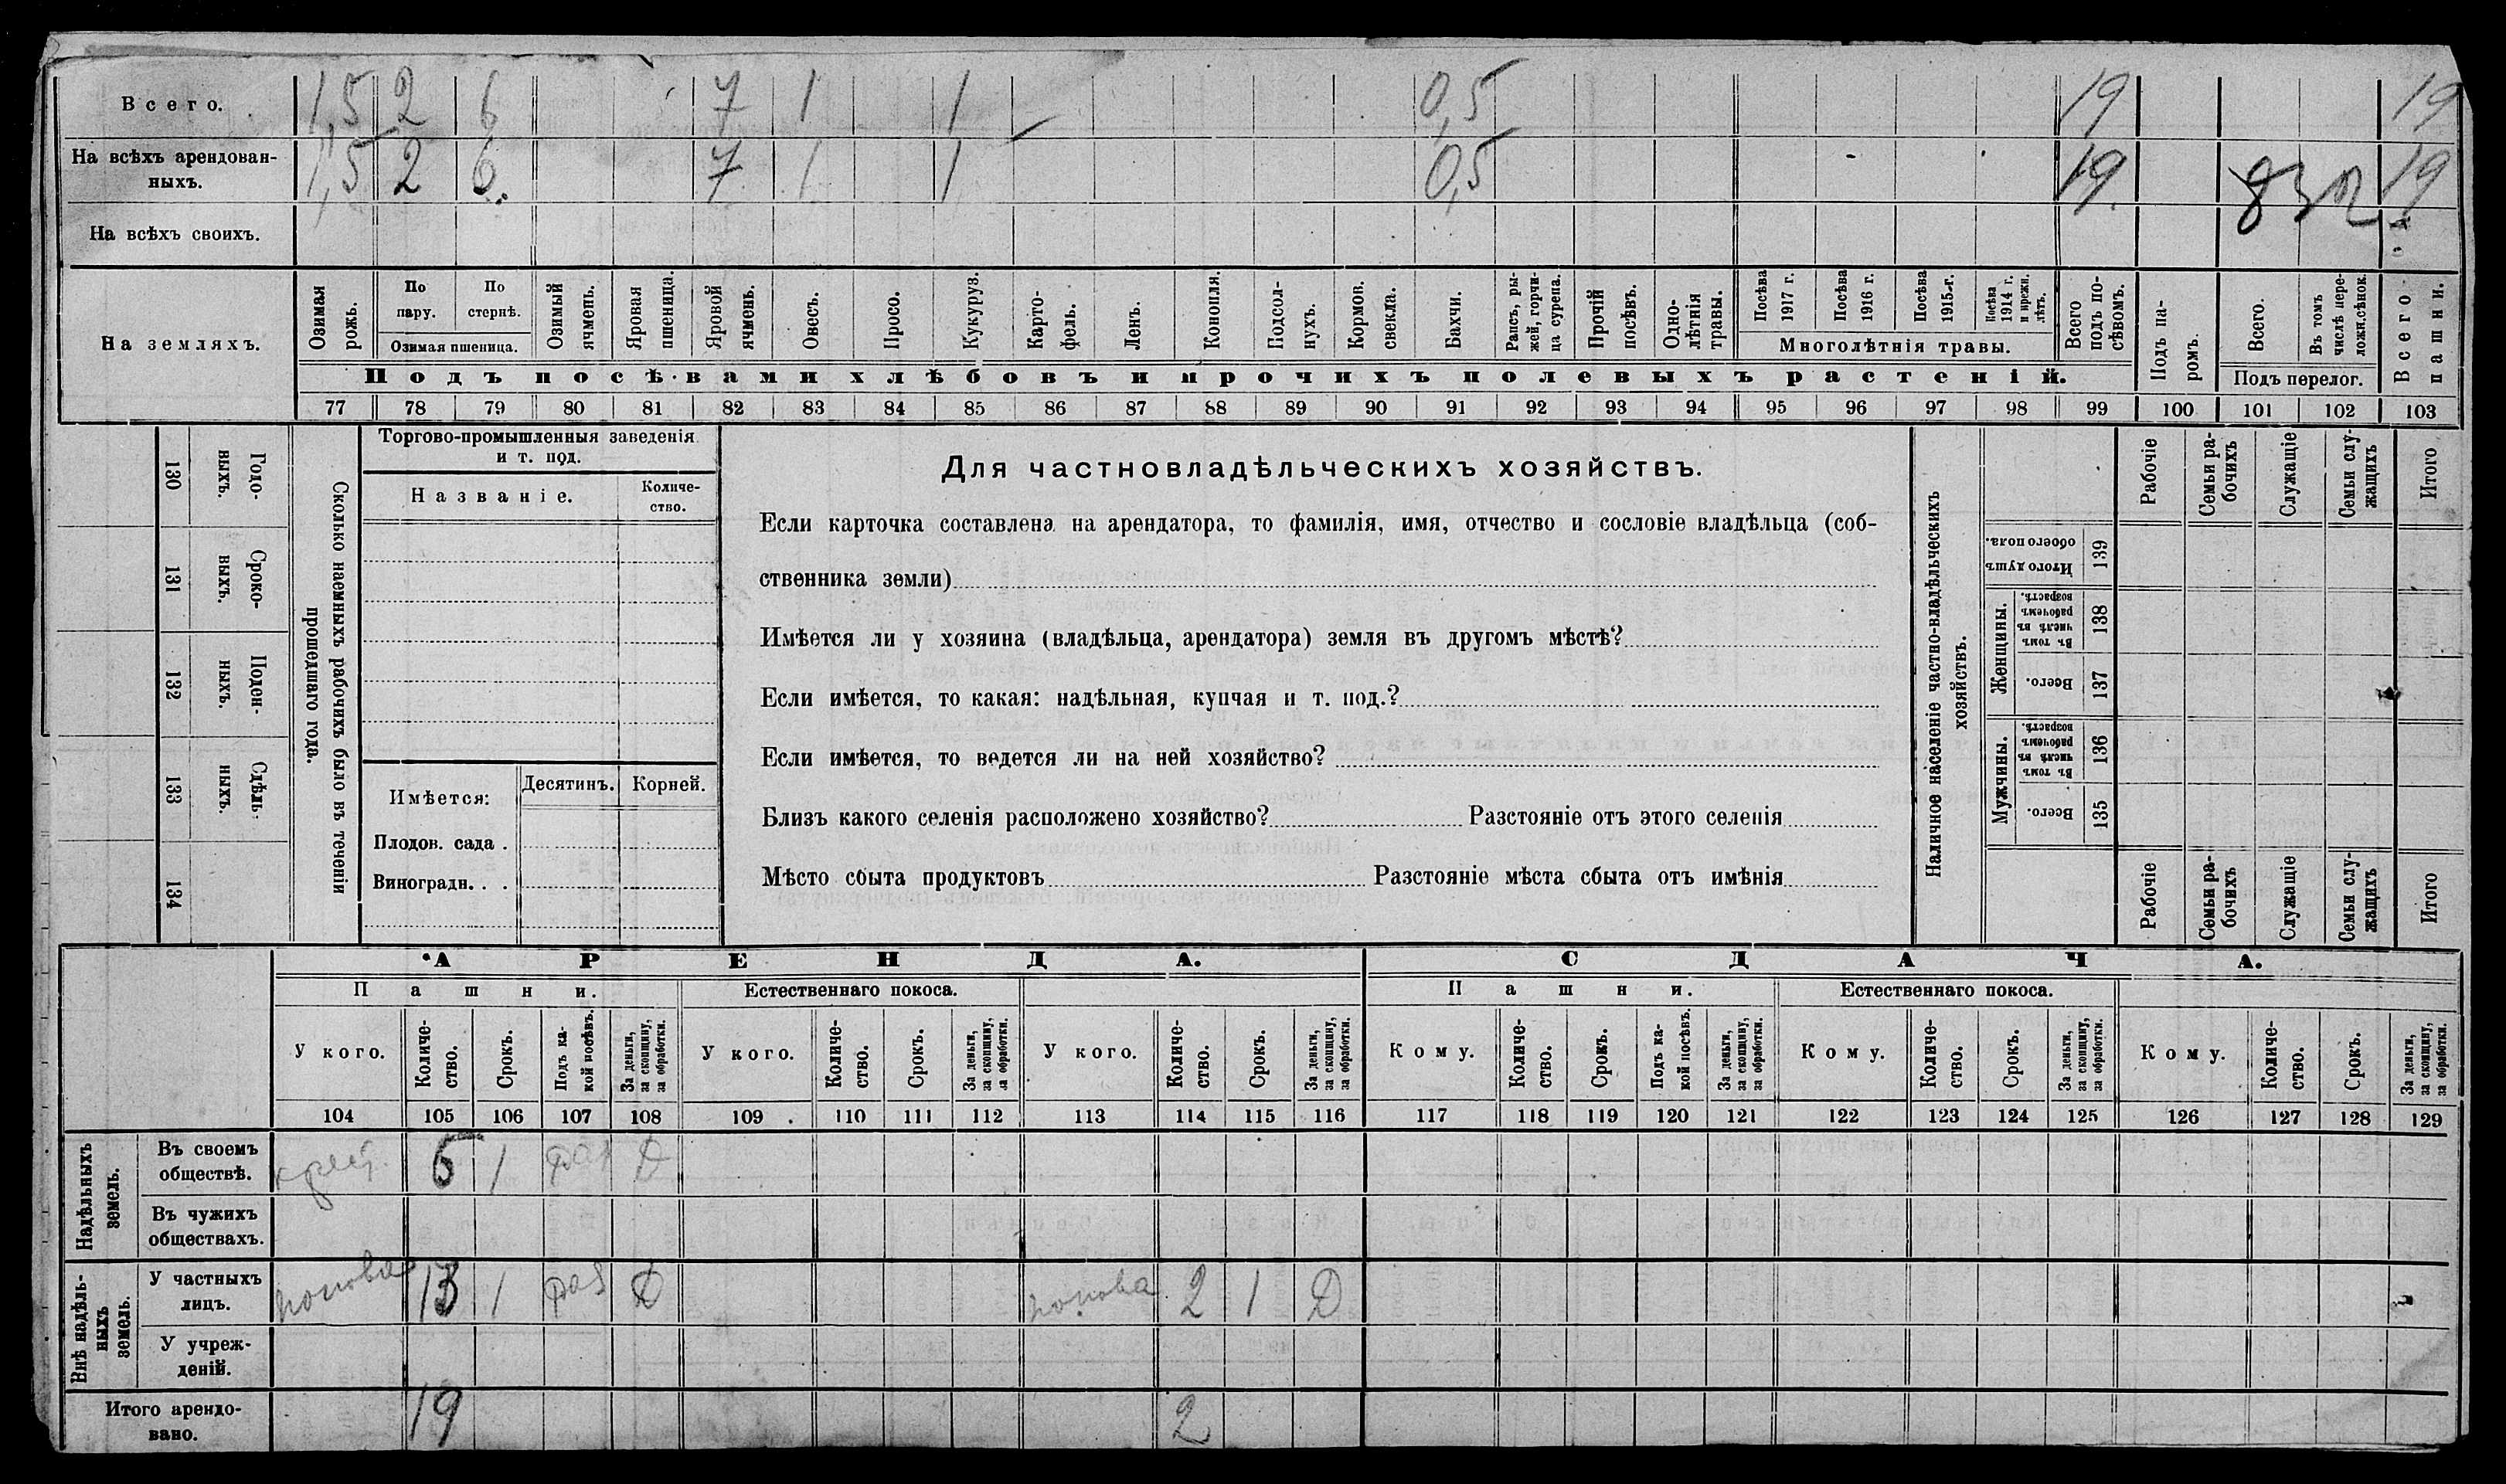 Всего. 1,5 2 6 7 1 1 0,5 19 19
На всѣхъ арендован-
ныхъ. 1,5 2 6. 7. 1 1 0,5 19. 19
На всѣхъ своихъ.
На земляхъ.
Озимая рожь.
По пару.
По стернѣ.
Озимая пшеница.
Озимый ячмень.
Яровая пшеница.
Яровой ячмень.
Овесъ.
Просо.
Кукуруз.
Карто-
фель.
Ленъ.
Конопля.
Подсол-
нухъ.
Кормов. свекла.
Бахчи.
Рапсъ, ры-
жей, горчи-
ца сурепа.
Прочій посѣвъ.
Одно-
лѣтнія
травы.
Посѣва 1917 г.
Посѣва 1916 г.
Посѣва 1915 г.
Посѣва 1914 г. и прежн. лѣтъ.
Многолѣтнія травы.
Всего подъ по-
сѣвомъ.
Подъ па-
ромъ.
Всего.
Въ томъ числѣ пере-
ложн.сѣнок.
Подъ перелог.
Всего пашни.
Подъ посѣвами хлѣбовъ и прочихъ полевыхъ растеній.
77 78 79 80 81 82 83 84 85 86 87 88 89 90 91 92 93 94 95 96 97 98 99 100 101 102 103
130 Годо-
выхъ.
131 Сроко-
ныхъ.
132 Поден-
ныхъ.
133 Сдѣль-
ныхъ.
134
Сколько наемныхъ рабочихъ было въ теченіи
прошедшаго года.
Торгово-промышленныя заведенія
и т. под.
Названіе.
Количе-
ство.
Имѣется: Десятинъ. Корней.
Плодов. сада .
Виноградн. . .
Для частновладѣльческихъ хозяйствъ.
Если карточка составлена на арендатора, то фамилія, имя, отчество и сословіе владѣльца (соб-
ственника земли)
Имѣется ли у хозяина (владѣльца, арендатора) земля въ другомъ мѣстѣ?
Если имѣется, то какая: надѣльная, купчая и т. под.?
Если имѣется, то ведется ли на ней хозяйство?
Близъ какого селенія расположено хозяйство? Разстояніе отъ этого селенія
Мѣсто сбыта продуктовъ Разстояніе мѣста сбыта отъ имѣнія
Наличное населеніе частно-владѣльческихъ
хозяйствъ.
Рабочіе
Семьи ра-
бочихъ
Служащіе
Семьи слу-
жащихъ
Итого
Итого душъ обоего пола. 139
Женщины.
Въ томъ числѣ въ рабочемъ возрастѣ. 138
Всего. 137
Мужчины.
Въ томъ числѣ въ рабочемъ возрастѣ. 136
Всего. 135
Рабочіе
Семьи ра-
бочихъ
Служащіе
Семьи слу-
жащихъ
Итого
АРЕНДА. СДАЧА.
Пашни. Естественнаго покоса. Пашни. Естественнаго покоса.
У кого.
Количе-
ство.
Срокъ.
Подъ ка-
кой посѣвъ.
За деньги,
за скопщину,
за обработки.
У кого.
Количе-
ство.
Срокъ.
За деньги,
за скопщину,
за обработки.
У кого.
Количе-
ство.
Срокъ.
За деньги,
за скопщину,
за обработки.
Кому.
Количе-
ство.
Срокъ.
Подъ ка-
кой посѣвъ.
За деньги,
за скопщину,
за обработки.
Кому.
Количе-
ство.
Срокъ.
За деньги,
за скопщину,
за обработки.
Кому.
Количе-
ство.
Срокъ.
За деньги,
за скопщину,
за обработки.
104 105 106 107 108 109 . 110 111 112 113 114 115 116 117 118 119 120 121 122 123 124 125 126 127 128 129
Надѣльныхъ
земель.
Въ своемъ
обществѣ. 1 Д
Въ чужихъ
обществахъ.
Внѣ надѣль-
ныхъ
земель.
У частныхъ
лицъ. попова 13 1 раз Д попова 2 1 Д
У учреж-
деній.
Итого арендо-
вано. 19 2